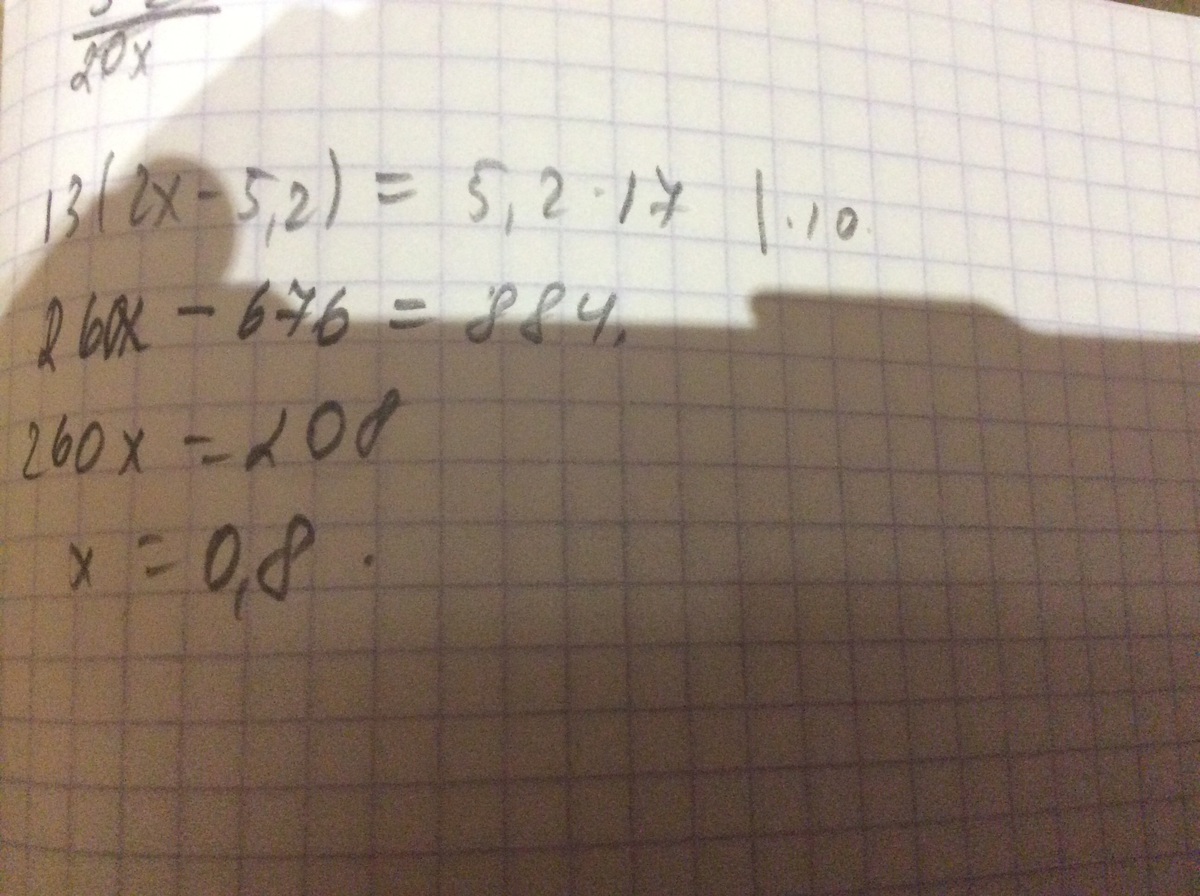 20x
13(2x - 5,2) = 5,2 · 17 | · 10.
260x - 676 = 884.
260x = 208
x = 0,8.